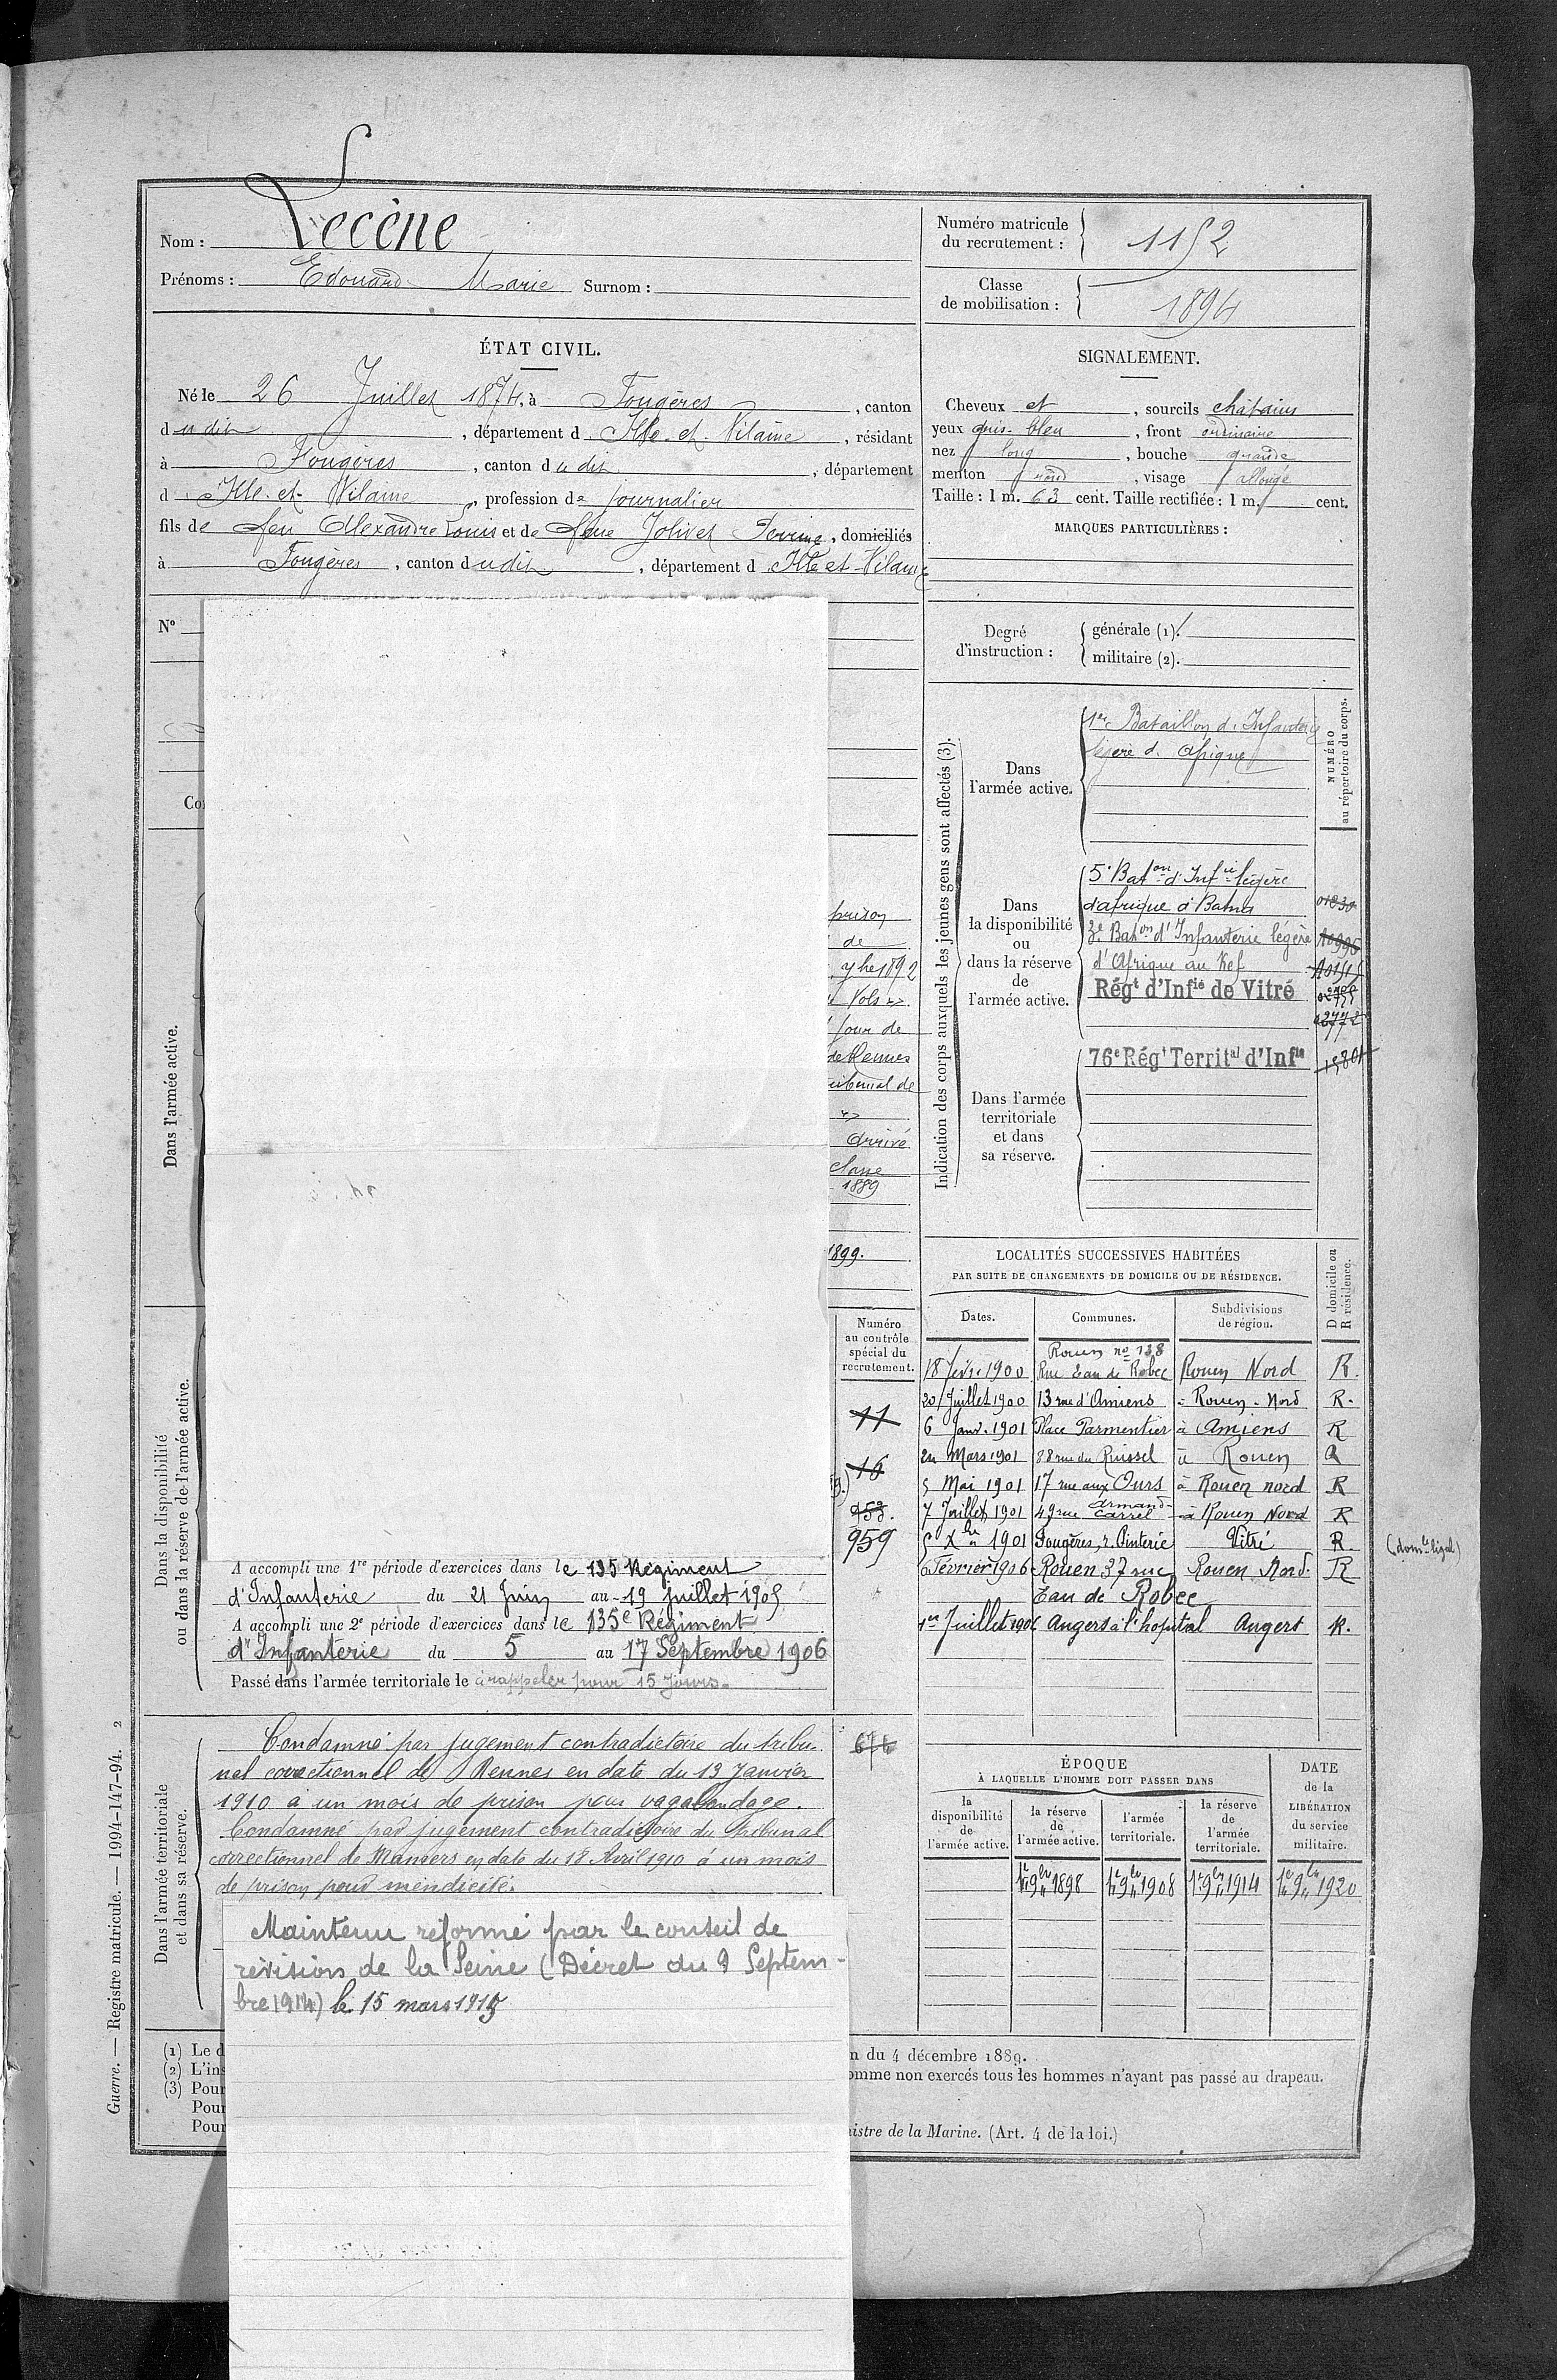 Nom : Lecène
Prénoms : Edouard Marie Surnom :
Numéro matricule
du recrutement :
1152
Classe
de mobilisation :
1894
ÉTAT CIVIL.
Né le 26 Juillet 1874, à Fougères , canton
dudit , département d Ille-et-Vilaine , résidant
à Fougères , canton dudit , département
d Ille-et-Vilaine , profession de journalier
fils de feu Alexandre Louis et de feue Jolivet Perrine , domiciliés
à Fougères , canton dudit , département d Ille et Vilaine
N°
SIGNALEMENT.
Cheveux et , sourcils châtains
yeux gris-bleu , front ordinaire
nez long , bouche grande
menton rond , visage allongé
Taille : 1 m. 63 cent. Taille rectifiée : 1 m. cent.
MARQUES PARTICULIÈRES :
Degré
d'instruction :
générale (1).
militaire (2).
Indication des corps auxquels les jeunes gens sont affectés (3).
NUMÉRO
au répertoire du corps.
Dans
l'armée active.
1er Bataillon d'Infanterie
légère d'Afrique
Dans
la disponibilité
ou
dans la réserve
de
l'armée active.
5e Baton d'Infie légère
d'afrique à Batna
3e Baton d'Infanterie légère
d'Afrique au Kef
Régt d'Infie de Vitré
Dans l'armée
territoriale
et dans
sa réserve.
76e Régt Territal d'Infie
Dans l'armée active.
prison
de
9bre 1892
Vols »
jour de
de Rennes
tribunal de
»
arrivé
classe
1889
1899.
Dans la disponibilité
ou dans la réserve de l'armée active.
Numéro
au contrôle
spécial du
recrutement.
11
16
953.
959
A accompli une 1re période d'exercices dans le 135 Régiment
d'Infanterie du 21 Juin au 19 juillet 1905
A accompli une 2e période d'exercices dans le 135e Régiment
d'Infanterie du 5 au 17 Septembre 1906
Passé dans l'armée territoriale le à rappeler pour 15 jours.
LOCALITÉS SUCCESSIVES HABITÉES
PAR SUITE DE CHANGEMENTS DE DOMICILE OU DE RÉSIDENCE.
D domicile ou
R résidence.
Dates. Communes. Subdivisions
de région.
Rouen no 138
18 févr. 1900 Rue Eau de Robec Rouen Nord R.
20 Juillet 1900 13 rue d'Amiens - Rouen-Nord R.
6 Janv. 1901 Place Parmentier à Amiens R
24 Mars 1901 88 rue du Ruissel à Rouen R
5 Mai 1901 17 rue aux Ours à Rouen nord R
7 Juillet 1901 49 rue Armand-Carrel à Rouen Nord R
5 Xbre 1901 Fougères, r. Pinterie Vitré R. (domle légal)
6 Février 1906 Rouen 37 rue Rouen Nord. R
Eau de Robec
1er Juillet 1906 Angers à l'hopital Angers R.
Dans l'armée territoriale
et dans sa réserve.
Condamné par jugement contradictoire du tribu-
nal correctionnel de Rennes en date du 13 Janvier
1910 à un mois de prison pour vagabondage.
Condamné par jugement contradictoire du tribunal
correctionnel de Mamers en date du 18 Avril 1910 à un mois
de prison pour mendicité.
Maintenu réformé par le conseil de
révision de la Seine (Décret du 9 Septem-
bre 1914) le 15 mars 1915
ÉPOQUE
À LAQUELLE L'HOMME DOIT PASSER DANS
DATE
de la
LIBÉRATION
du service
militaire.
la
disponibilité
de
l'armée active.
la réserve
de
l'armée active.
l'armée
territoriale.
la réserve
de
l'armée
territoriale.
1er 9bre 1898 1er 9bre 1908 1er 9bre 1914 1er 9bre 1920
(1) Le d
n du 4 décembre 1889.
(2) L'ins
omme non exercés tous les hommes n'ayant pas passé au drapeau.
(3) Pour
Pour
Pour
nistre de la Marine. (Art. 4 de la loi.)
Guerre. — Registre matricule. — 1994-147-94. 2